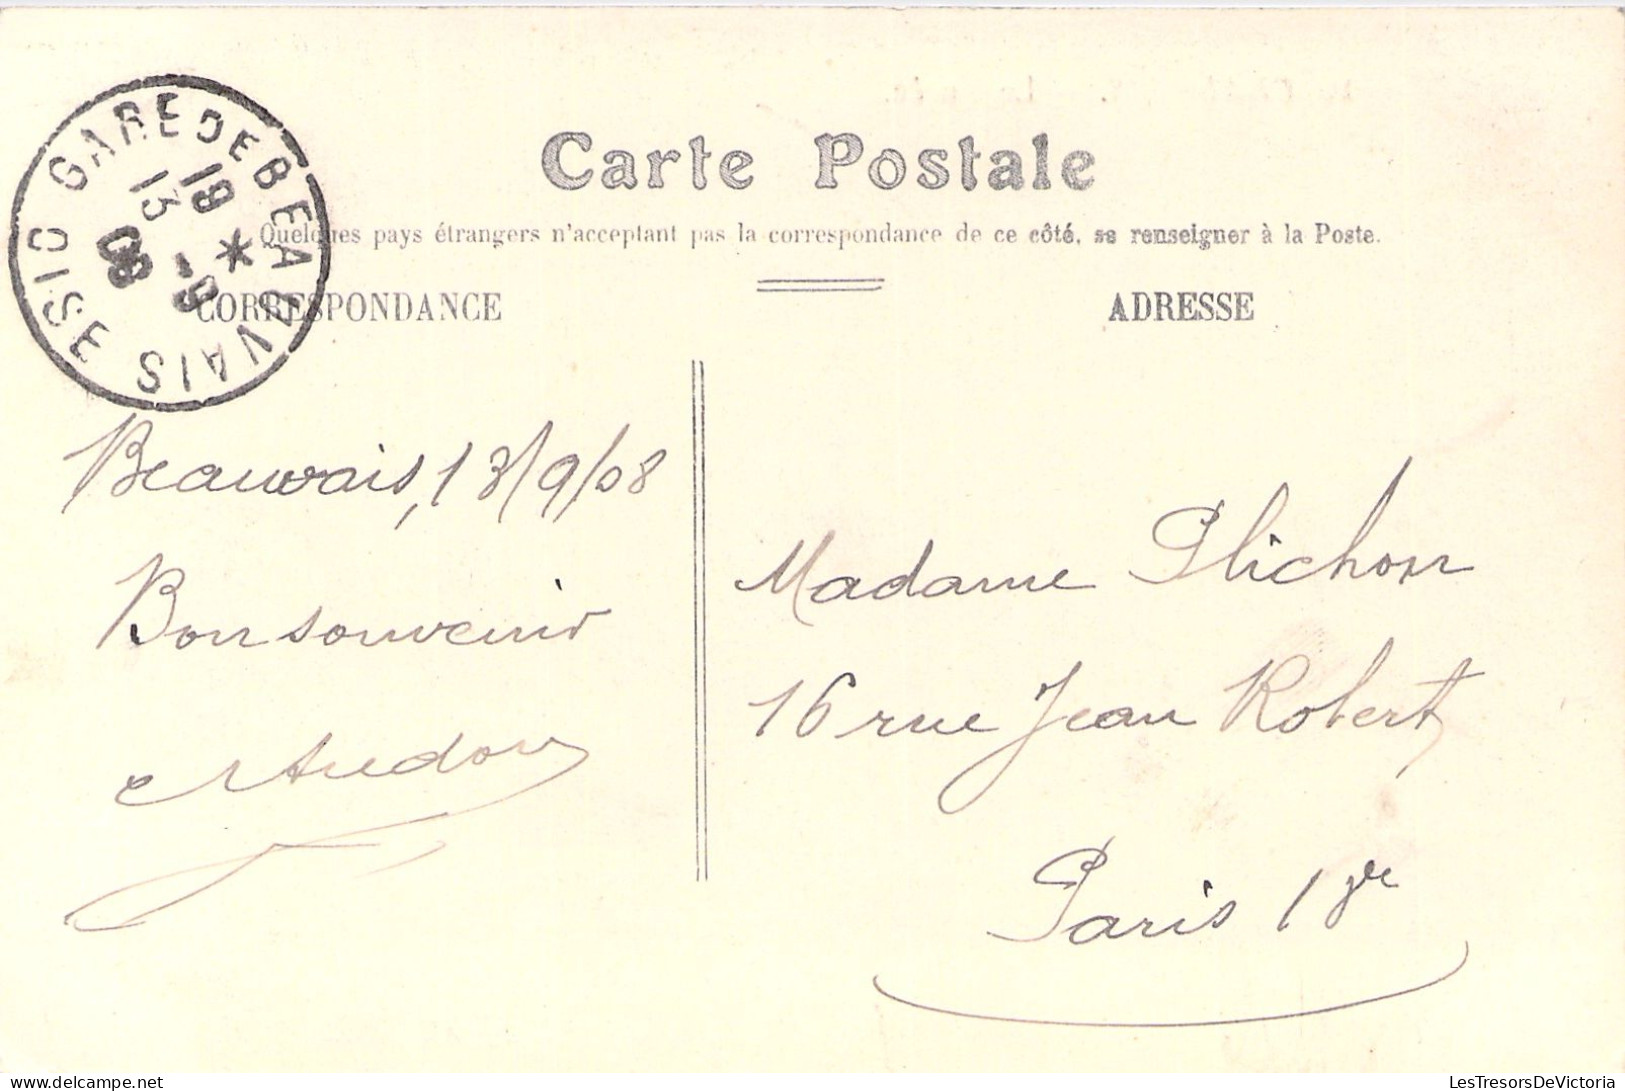 GARE DE BEAUVAIS OISE
19
13
-9
08
Carte Postale
Quelques pays étrangers n'acceptant pas la correspondance de ce côté, se renseigner à la Poste.
CORRESPONDANCE
ADRESSE
Beauvais, 13/9/08
Bon souvenir
Madame Plichon
16 rue Jean Robert
Paris
LesTresorsDeVictoria